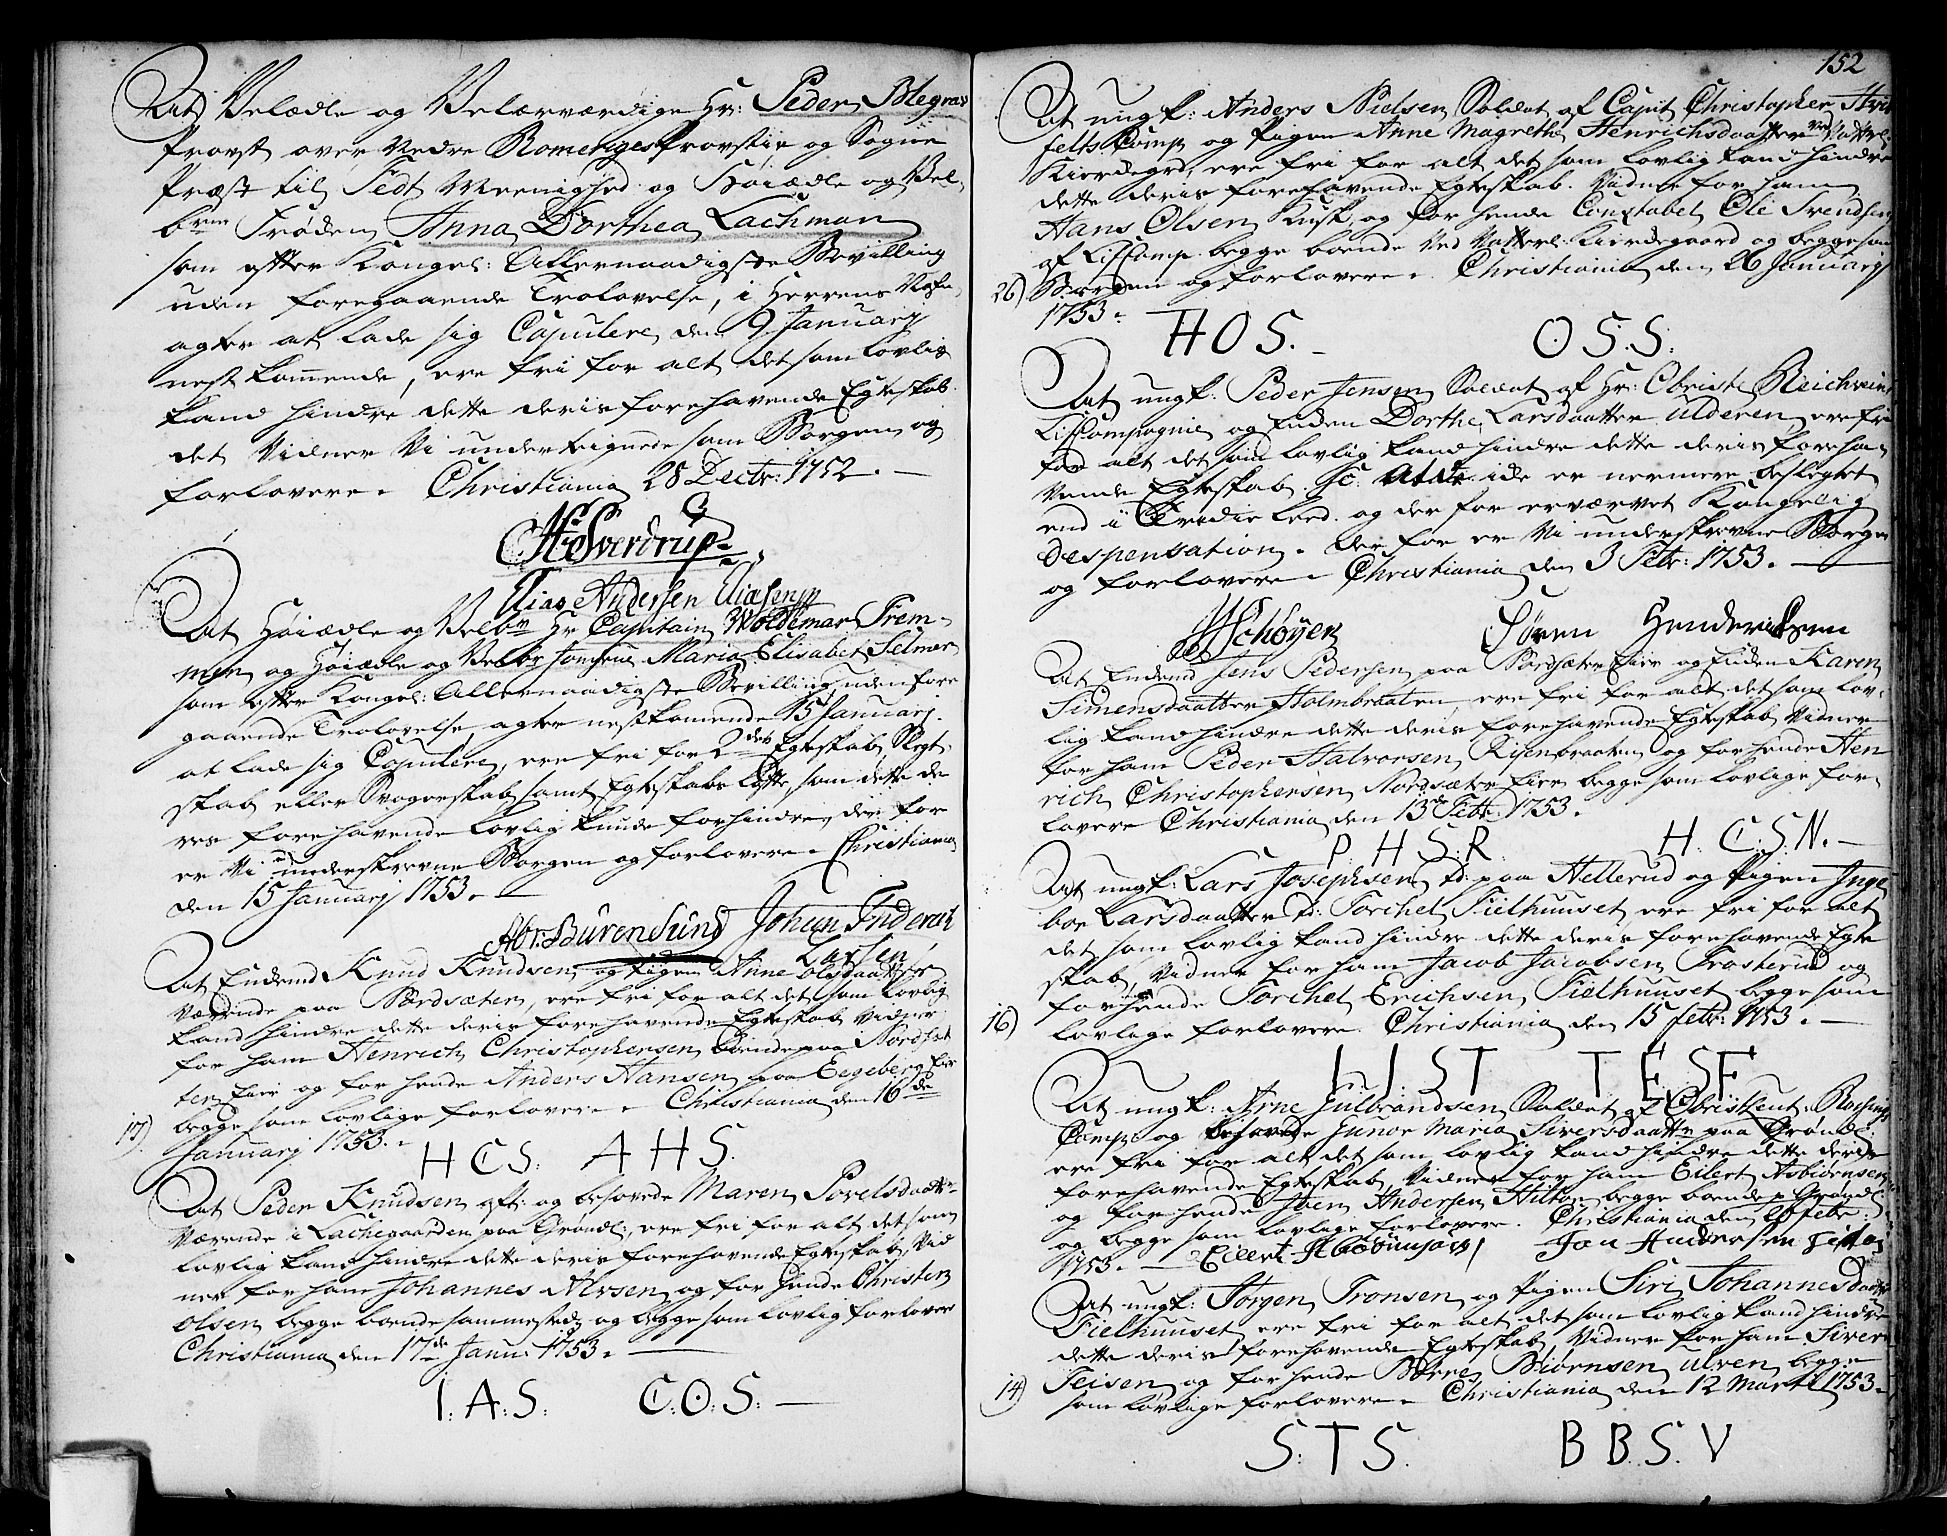 At Velædle og Velærværdige Hr: Peder Blegrav
Provst over Nedre Romeriges Provstie og Sogne
Præst til Fedt Meenighed og Höiædle og Vel
bme Frøden Anna Dorthea Lachman
som efter Kongel: Allernaadigste Bevilling
uden foregaaende Trolovelse, i Herrens Nafn
agter at lade sig Copulere den 9 Januarij
nest kommende, ere fri for alt det som lovlig
kand hindre dette deris forehavende Egteskab
det Vidner Vi undertegnede som Borgen og
forlovere. Christiania 28 Dectr: 1752.
H: Sverdrup
Elias Andersen Eliasen
At Höiædle og Velbn Hr Capitain Woldemar Frem-
men og Höiædle og Velb: Jomfrue Maria Elisabet Selmer
som efter Kongel: Allernaadigste Bevilling uden fore
gaaende Trolovelse, agter nestkomende 15 Januarij
at lade sig Copulere, ere fri for 2det Egteskab, Slegt-
skab eller Svogerskab samt Egteskabs løfte, som dette de
res forehavende lovlig kunde forhindre, der for
er Vi underskrevne Borgen og forlovere. Christiania
den 15 Januarij 1753.
Abr: Buren Sund Johan Friderich
Larsen
At Enkemd Knud Knudsen og Pigen Anne Olsdaatter
Værende paa Nordsæter, ere fri for alt det som lovlig
kand hindre dette deris forehavende Egteskab Vidner
for ham Henrich Christophersen boende paa Nordsæt
ter Eier og for hende Anders Hansen paa Eegeberg Eier
begge som lovlige forlovere. Christiania den 16de
17) Januarij 1753.
HCS: AHS.
At Peder Knudsen aft: og besovede Maren Povelsdaatter
Værende i Lachegaarden paa Grønl:, ere fri for alt det som
lovlig kand hindre dette deris forehavende Egteskab, Vid
ner for ham Johannes Aersen og for hende Christen
Olsen begge boende sammesteds og begge som lovlig forlovere
Christiania den 17de Janu: 1753.
I: A: S: C: O: S:
152
At ungk: Anders Nielsen Soldat af Capit Christopher
felts Comp og Pigen Anne Magrethe Henrichsdaatter ved Vatterl:
Kierdegrd, ere fri for alt det som lovlig kand hindre
dette deris forehavende Egteskab. Vidner for ham
Hans Olsen Kusk og for hende Constabel Ole Svendsen
af Lifcomp. begge boende ved Vatterl: Kierdegaard og begge som
26) Borgen og forlovere. Christiania den 26 Januarij
1753.
HOS. O S: S:
At ungk: Peder Jensen Soldat af Hr: Obriste Reichweins
Lifcompagnie og Enken Dorthe Larsdaatter Ulderen, ere fri
for alt det som lovlig kand hindre dette deris foreha
vende Egteskab. Sc: at de ide er nermere beslegtet
end i Tredie Leed. og der for erværvet Kongelig
Despensation. Der for er Vi underskrevne Borgen
og forlovere. Christiania den 3 Febr: 1753.
Schøyen Søren Hendericksen
At Enkemd Jens Pedersen paa Nordsæter Eier og Enken Karen
Simensdaatter Holmbraaten, ere fri for alt det som lov-
lig kand hindre dette deris forehavende Egteskab, Vidner
for ham Peder Halvorsen Risenbraaten og for hende Hen
rich Christophersen Nordsæter Eier begge som lovlige for-
lovere Christiania den 13de Febr: 1753.
P: H: S: R. H: C: S: N.
At ungk: Lars Josephsen td: paa Hellerud og Pigen Inge
bor Larsdaatter td: Torchel Fielhuuset, ere fri for alt
det som lovlig kand hindre dette deris forehavende Egte
skab, Vidner for ham Jacob Jacobsen Trosterud og
for hende Torchel Erichsen Fielhuuset begge som
16) lovlige forlovere. Christiania den 15 febr: 1753.
I I: S T T: E S F
At ungk: Arne Gulbrandsen Soldat af Obristlieut:
Comp og besovede Gunor Maria Siversdaatter paa Grønl:
ere fri for alt det som lovlig kand hindre dette deris
forehavende Egteskab, Vidner for ham Eilert Asbiörnsen
og for hende Joen Andersen Hilton begge boende p Grønl:
og begge som lovlige forlovere. Christiania den febr:
1753. Eilert Asbiörnsøn Jon Andersen
At ungk: Jørgen Tronsen og Pigen Siri Johannesdaatter
Fielhuuset, ere fri for alt det som lovlig kand hindre
dette deris forehavende Egteskab, Vidner for ham Siver
Teisen og for hende Børre Biörnsen Ulven begge
14) som lovlige forlovere. Christiania den 12 Marti 1753.
S: T S. B B: S: V